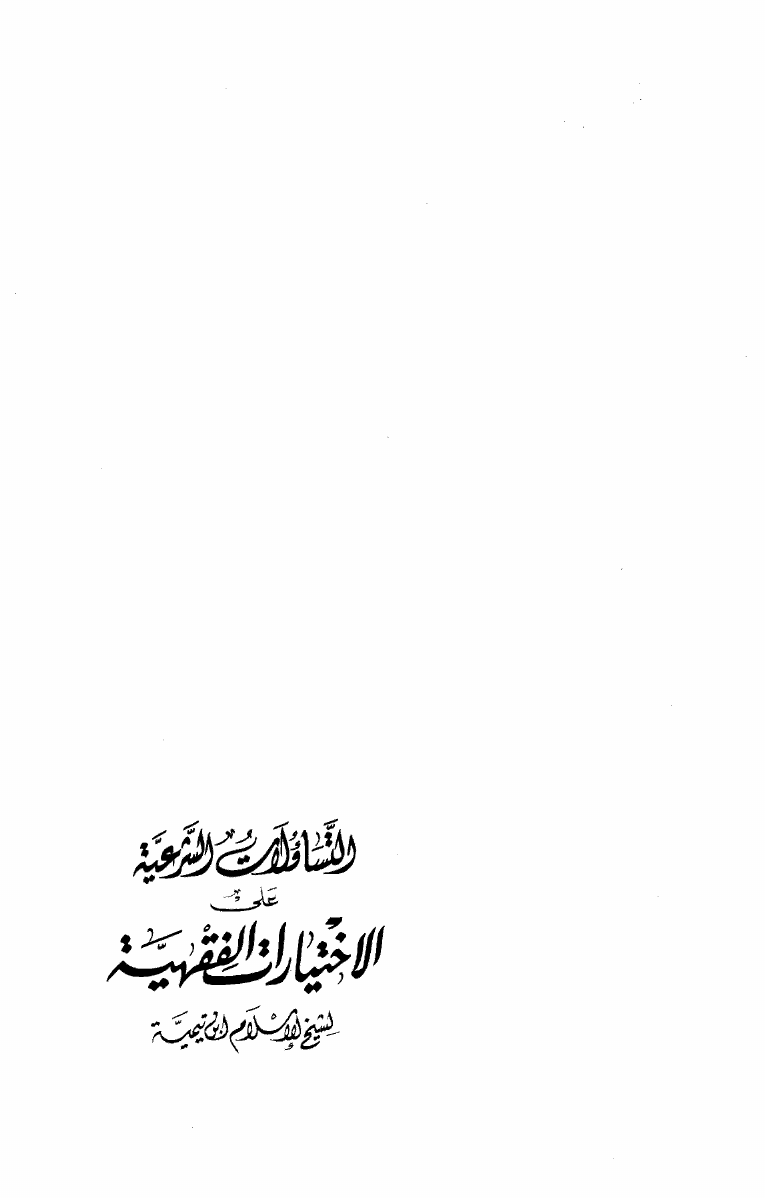 التَّسَاؤُلَاتُ الشَّرْعِيَّة
عَلَى
الاخْتِيَارَاتِ الفِقْهِيَّة
لشَيخ الإِسْلَام ابن تيميَّة